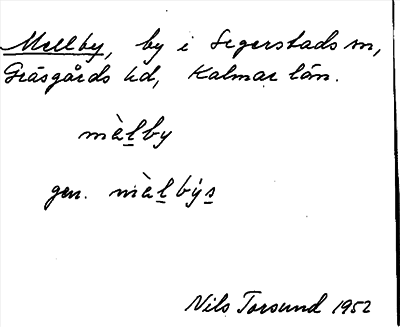 Mellby, by i Segerstads sn,
Gräsgårds hd, Kalmar län.
mèl̲by
gen. mèl̲býs̲
Nils Torsund 1952